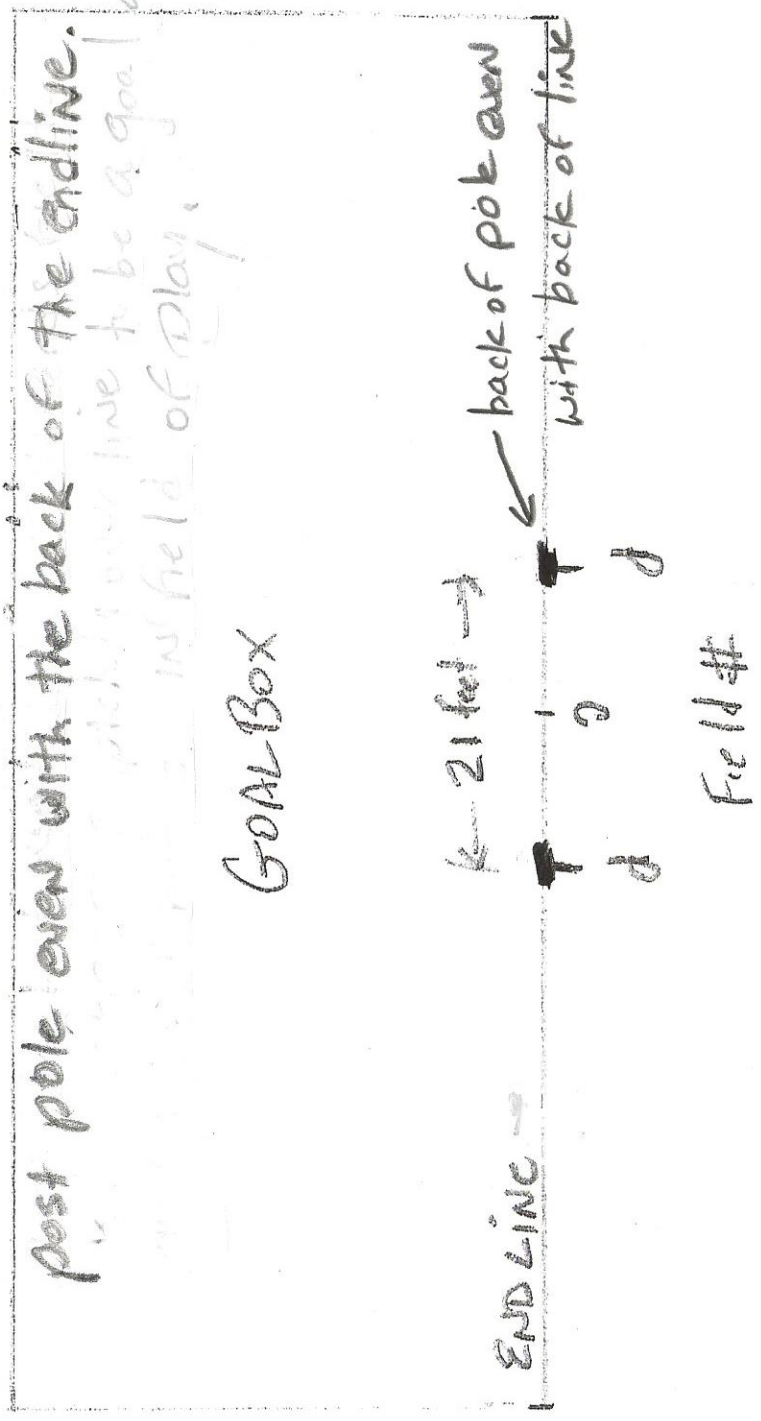 post pole even with the back of the endline.
line to be a goal
IN field of Play.
GOAL BOX
← 21 feet →
back of pole even
with back of line
END LINE
Field #